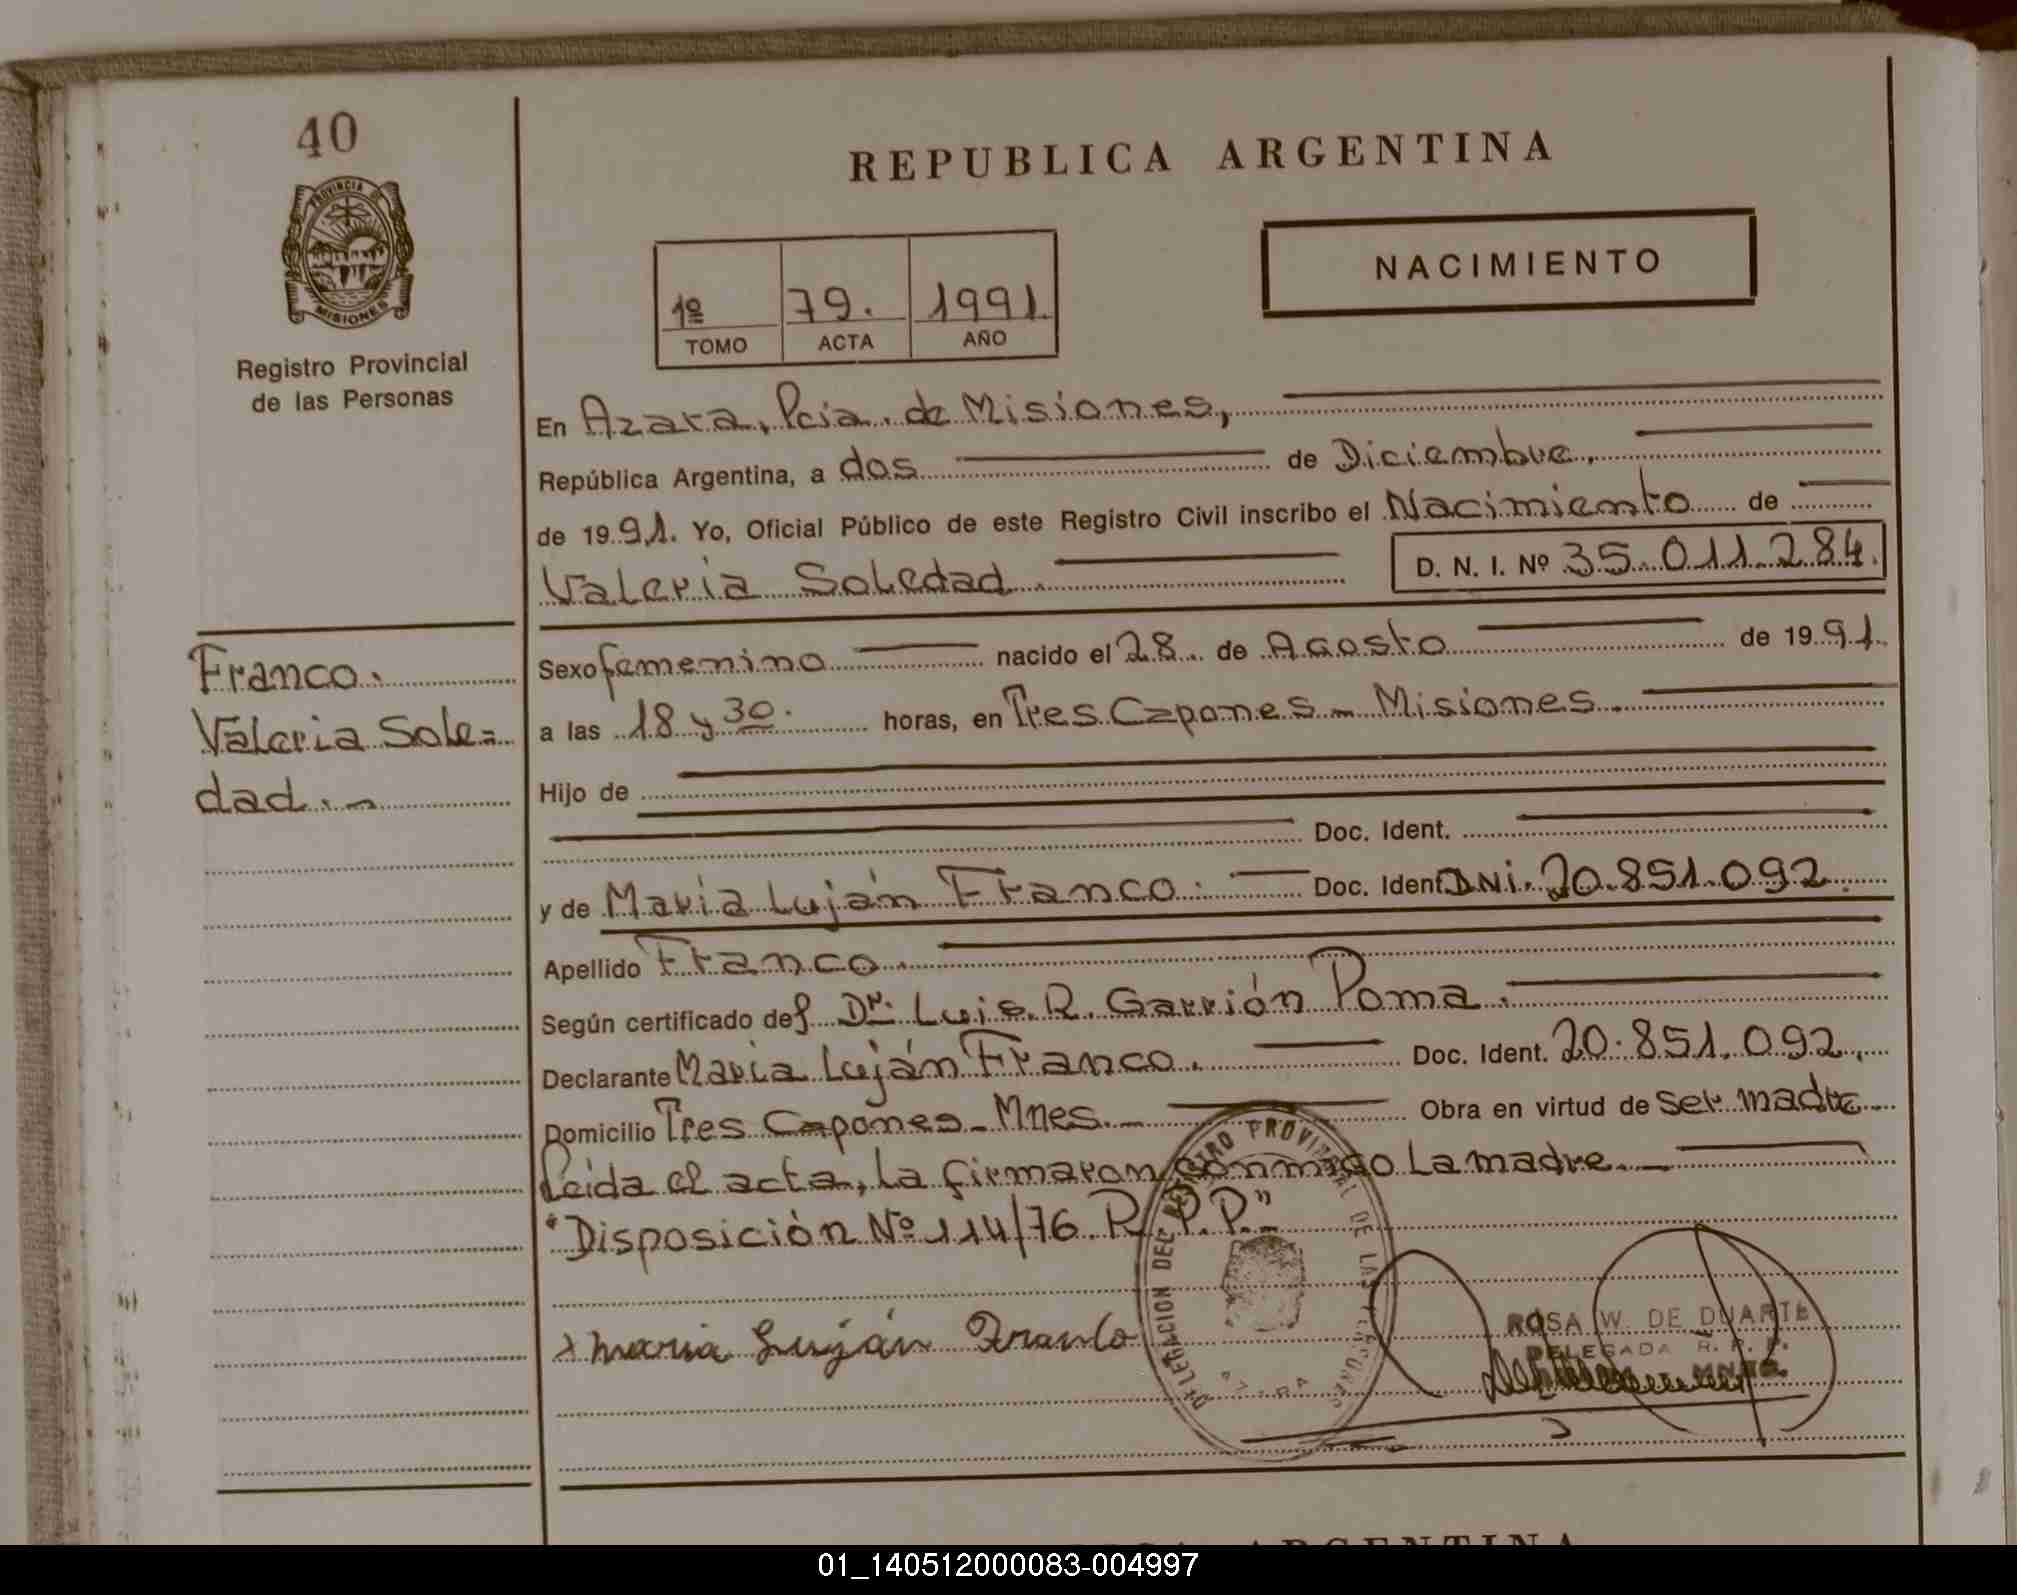 40
PROVINCIA DE
MISIONES
Registro Provincial
de las Personas
REPUBLICA ARGENTINA
NACIMIENTO
1º 79. 1991.
TOMO ACTA AÑO
En Azara, Pcia. de Misiones,
República Argentina, a dos de Diciembre,
de 19 91. Yo, Oficial Público de este Registro Civil inscribo el Nacimiento de
Valeria Soledad. D. N. I. Nº 35.011.284.
Franco.
Valeria Sole=
dad.-
Sexo femenino nacido el 28 de Agosto de 19 91.
a las 18 y 30. horas, en Tres Capones - Misiones.
Hijo de
Doc. Ident.
y de María Luján Franco. Doc. Ident. DNI. 20.851.092.
Apellido Franco.
Según certificado del Dr. Luis R. Garrión Poma.
Declarante María Luján Franco. Doc. Ident. 20.851.092.
Domicilio Tres Capones - Mnes. Obra en virtud de ser madre
Leída el acta, la firmaron conmigo La madre.-
"Disposición Nº 114/76 R.P.P."
x Maria Luján Franco
DELEGACION DEL REGISTRO PROVINCIAL DE LAS PERSONAS
AZARA
ROSA W. DE DUARTE
DELEGADA R. P. P.
ARGENTINA
01_140512000083-004997